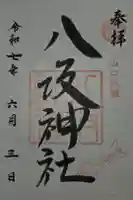 奉拝
八坂神社
令和七年
六月三日